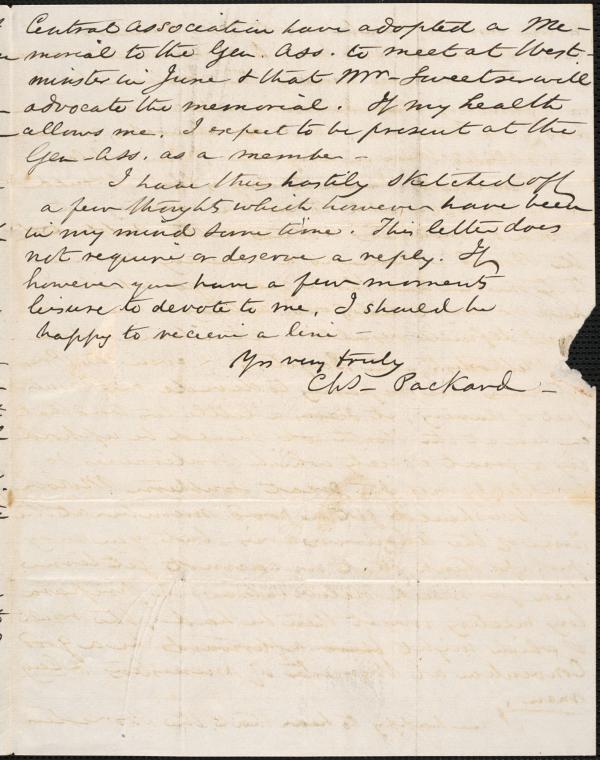 Central Association have adopted a Me-
morial to the Gen. Ass. to meet at West-
minster in June & that Mr Sweetser will
advocate the memorial. If my health
allows me. I expect to be present at the
Gen-Ass. as a member -
I have thus hastily sketched off
a few thoughts which however have been
in my mind some time. This letter does
not require or deserve a reply. If
however you have a few moments
leisure to devote to me, I should be
happy to recieve a line -
Yrs very truly
Chs - Packard -